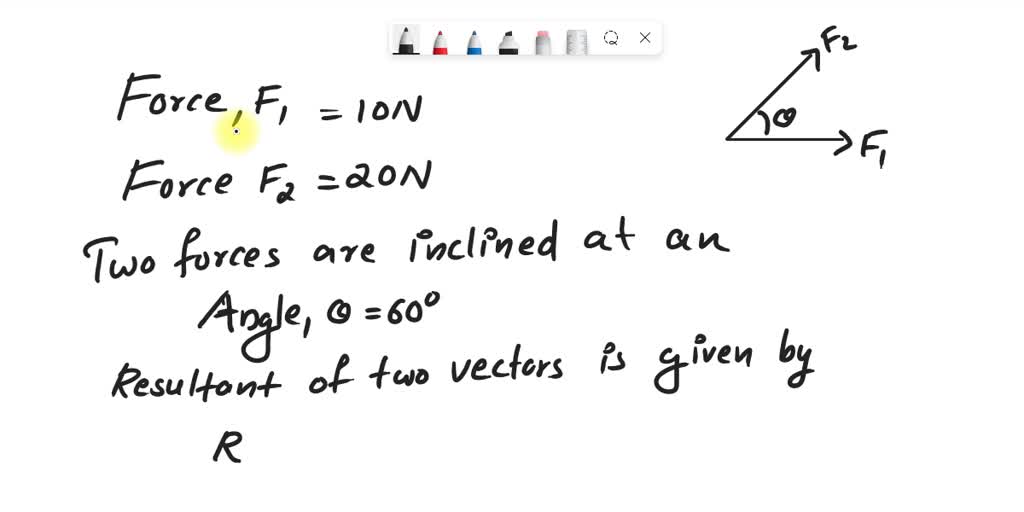 Force, F₁ = 10N
Force F₂ = 20N
Two forces are inclined at an
Angle, θ = 60°
Resultant of two vectors is given by
R
F₂
θ
F₁